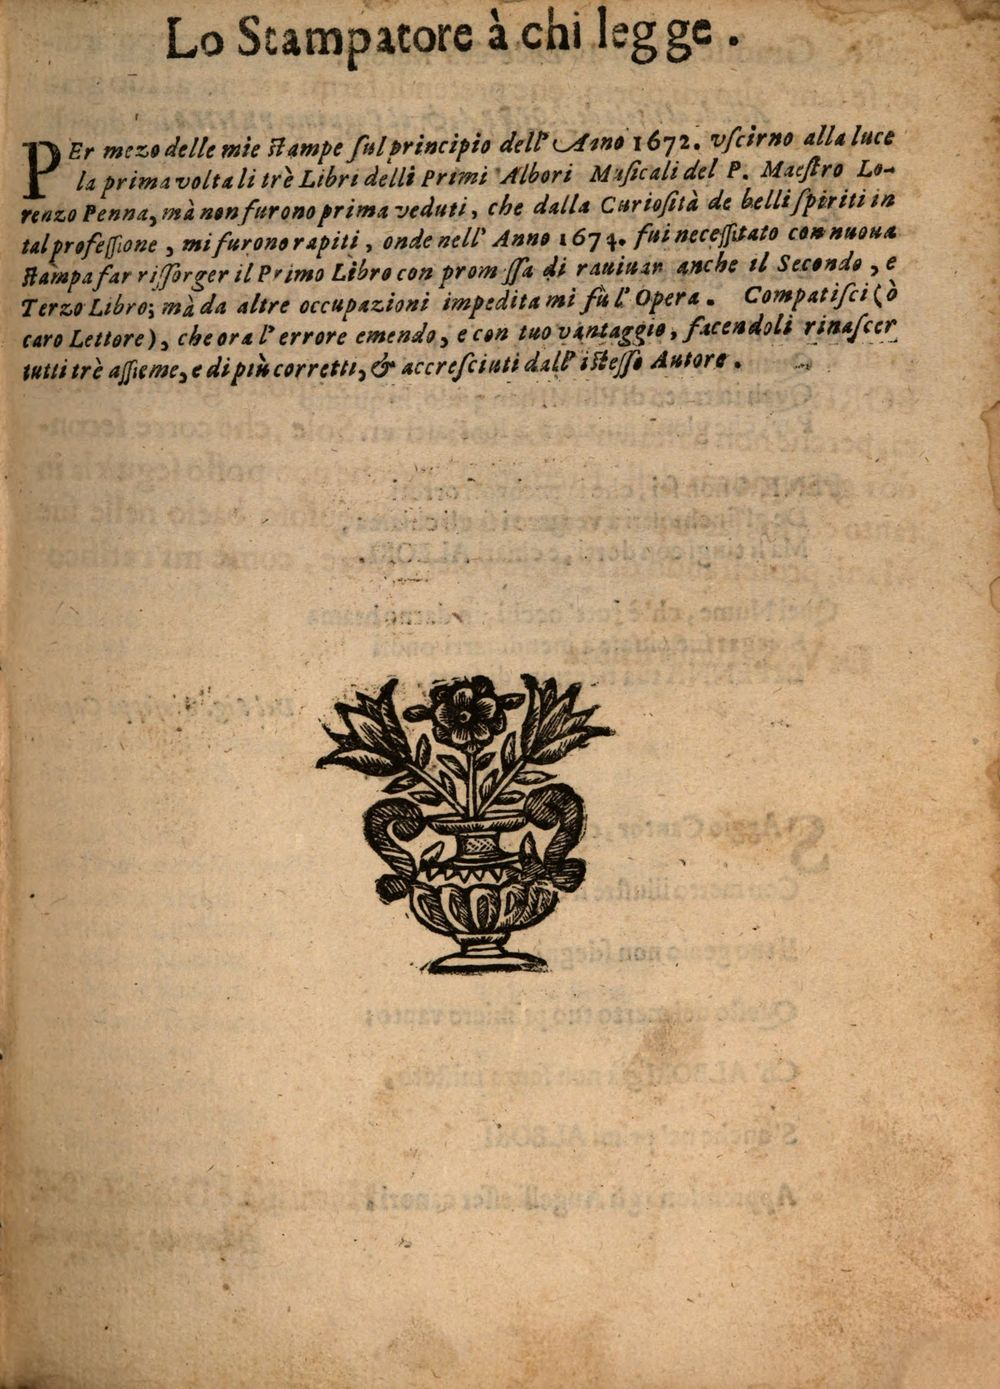 Lo Stampatore à chi legge.
PEr mezo delle mie stampe ſul principio dell' Anno 1672. vſcirno alla luce
la prima volta li trè Libri delli Primi Albori Muſicali del P. Maeſtro Lo-
renzo Penna, mà non furono prima veduti, che dalla Curioſità de belli ſpiriti in
tal profeſſione, mi furono rapiti, onde nell' Anno 1674. fui neceſſitato con nuoua
stampa far riſſorger il Primo Libro con prom ſſa di rauiuar anche il Secondo, e
Terzo Libro; mà da altre occupazioni impedita mi fù l' Opera. Compatiſci (ò
caro Lettore), che ora l' errore emendo, e con tuo vantaggio, facendoli rinaſcer
tutti trè aſſieme, e di più corretti, & accreſciuti dall' isteſſo Autore.